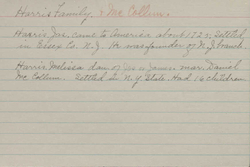 Harris Family, & Mc Collum.
Harris Jos. came to America about 1725; settled
in Essex Co. N.J. He was founder of N.J. branch
Harris Melissa dau of Jas. & James mar. Daniel
Mc Collum. Settled in N.Y. State. Had 16 children